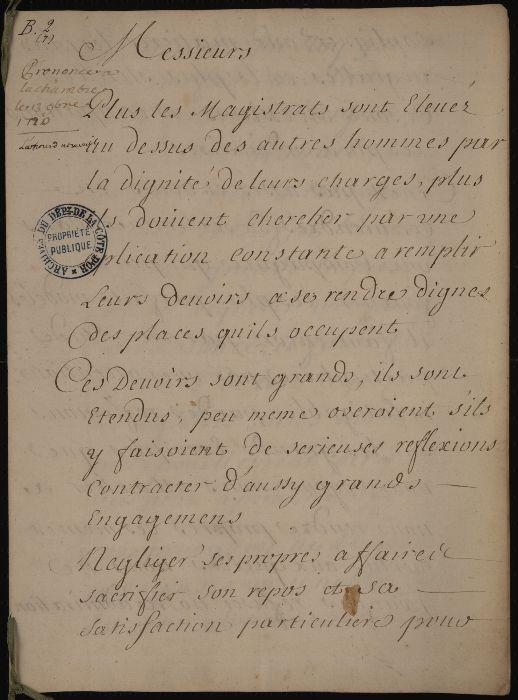 B. 2
(7)
Messieurs
Prononcé a
la chambre
le 13 9bre
1720
Plus les Magistrats sont Elevéz
au dessus des autres hommes par
la dignité de leurs charges, plus
ils doivent chercher par une
application constante a remplir
Leurs devoirs a se rendre dignes
des places quils occupent
Ces Devoirs sont grands, ils sont
Etendus, peu meme oseroient sils
y faisoient de serieuses reflexions
Contracter d'aussy grands
Engagemens
Negliger ses propres affaires
sacrifier son repos et sa
satisfaction particuliere pour
ARCHIVES DU DÉPT. DE LA CÔTE D'OR
PROPRIÉTÉ
PUBLIQUE